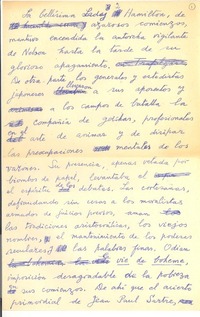 La bellísima Lady Hamilton, de
azarosos comienzos,
mantuvo encendida la antorcha vigilante
de Nelson hasta la tarde de su
glorioso apagamiento.
De otra parte, los generales y estadistas
japoneses llegaron a sus aparatos y
a los campos de batalla la
compañía de geishas, profesionales
en el arte de animar y de disipar
las preocupaciones mentales de los
varones. Su presencia, apenas velada por
biombos de papel, levantaba el
el espíritu de los debutas. Las cortesanas,
defendiendo sin cesar a los moralistas
armados de juicios previos, aman
las tradiciones aristocráticas, los viejos
nombres, el mantenimiento de los poderes
seculares, las palabras finas. Odian
la vie de bohème,
imposición desagradable de la pobreza
sus comienzos. De ahí que el acierto
primordial de Jean Paul Sartre,